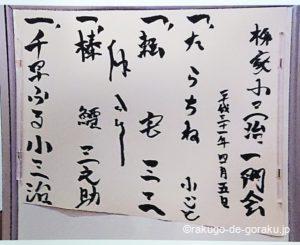 柳家小三治一門会
平成三十一年四月五日
一、たらちね 小ごと
一、転宅 三三
仲入り
一、棒鱈 三之助
一、千早ふる 小三治
©rakugo-de-goraku.jp